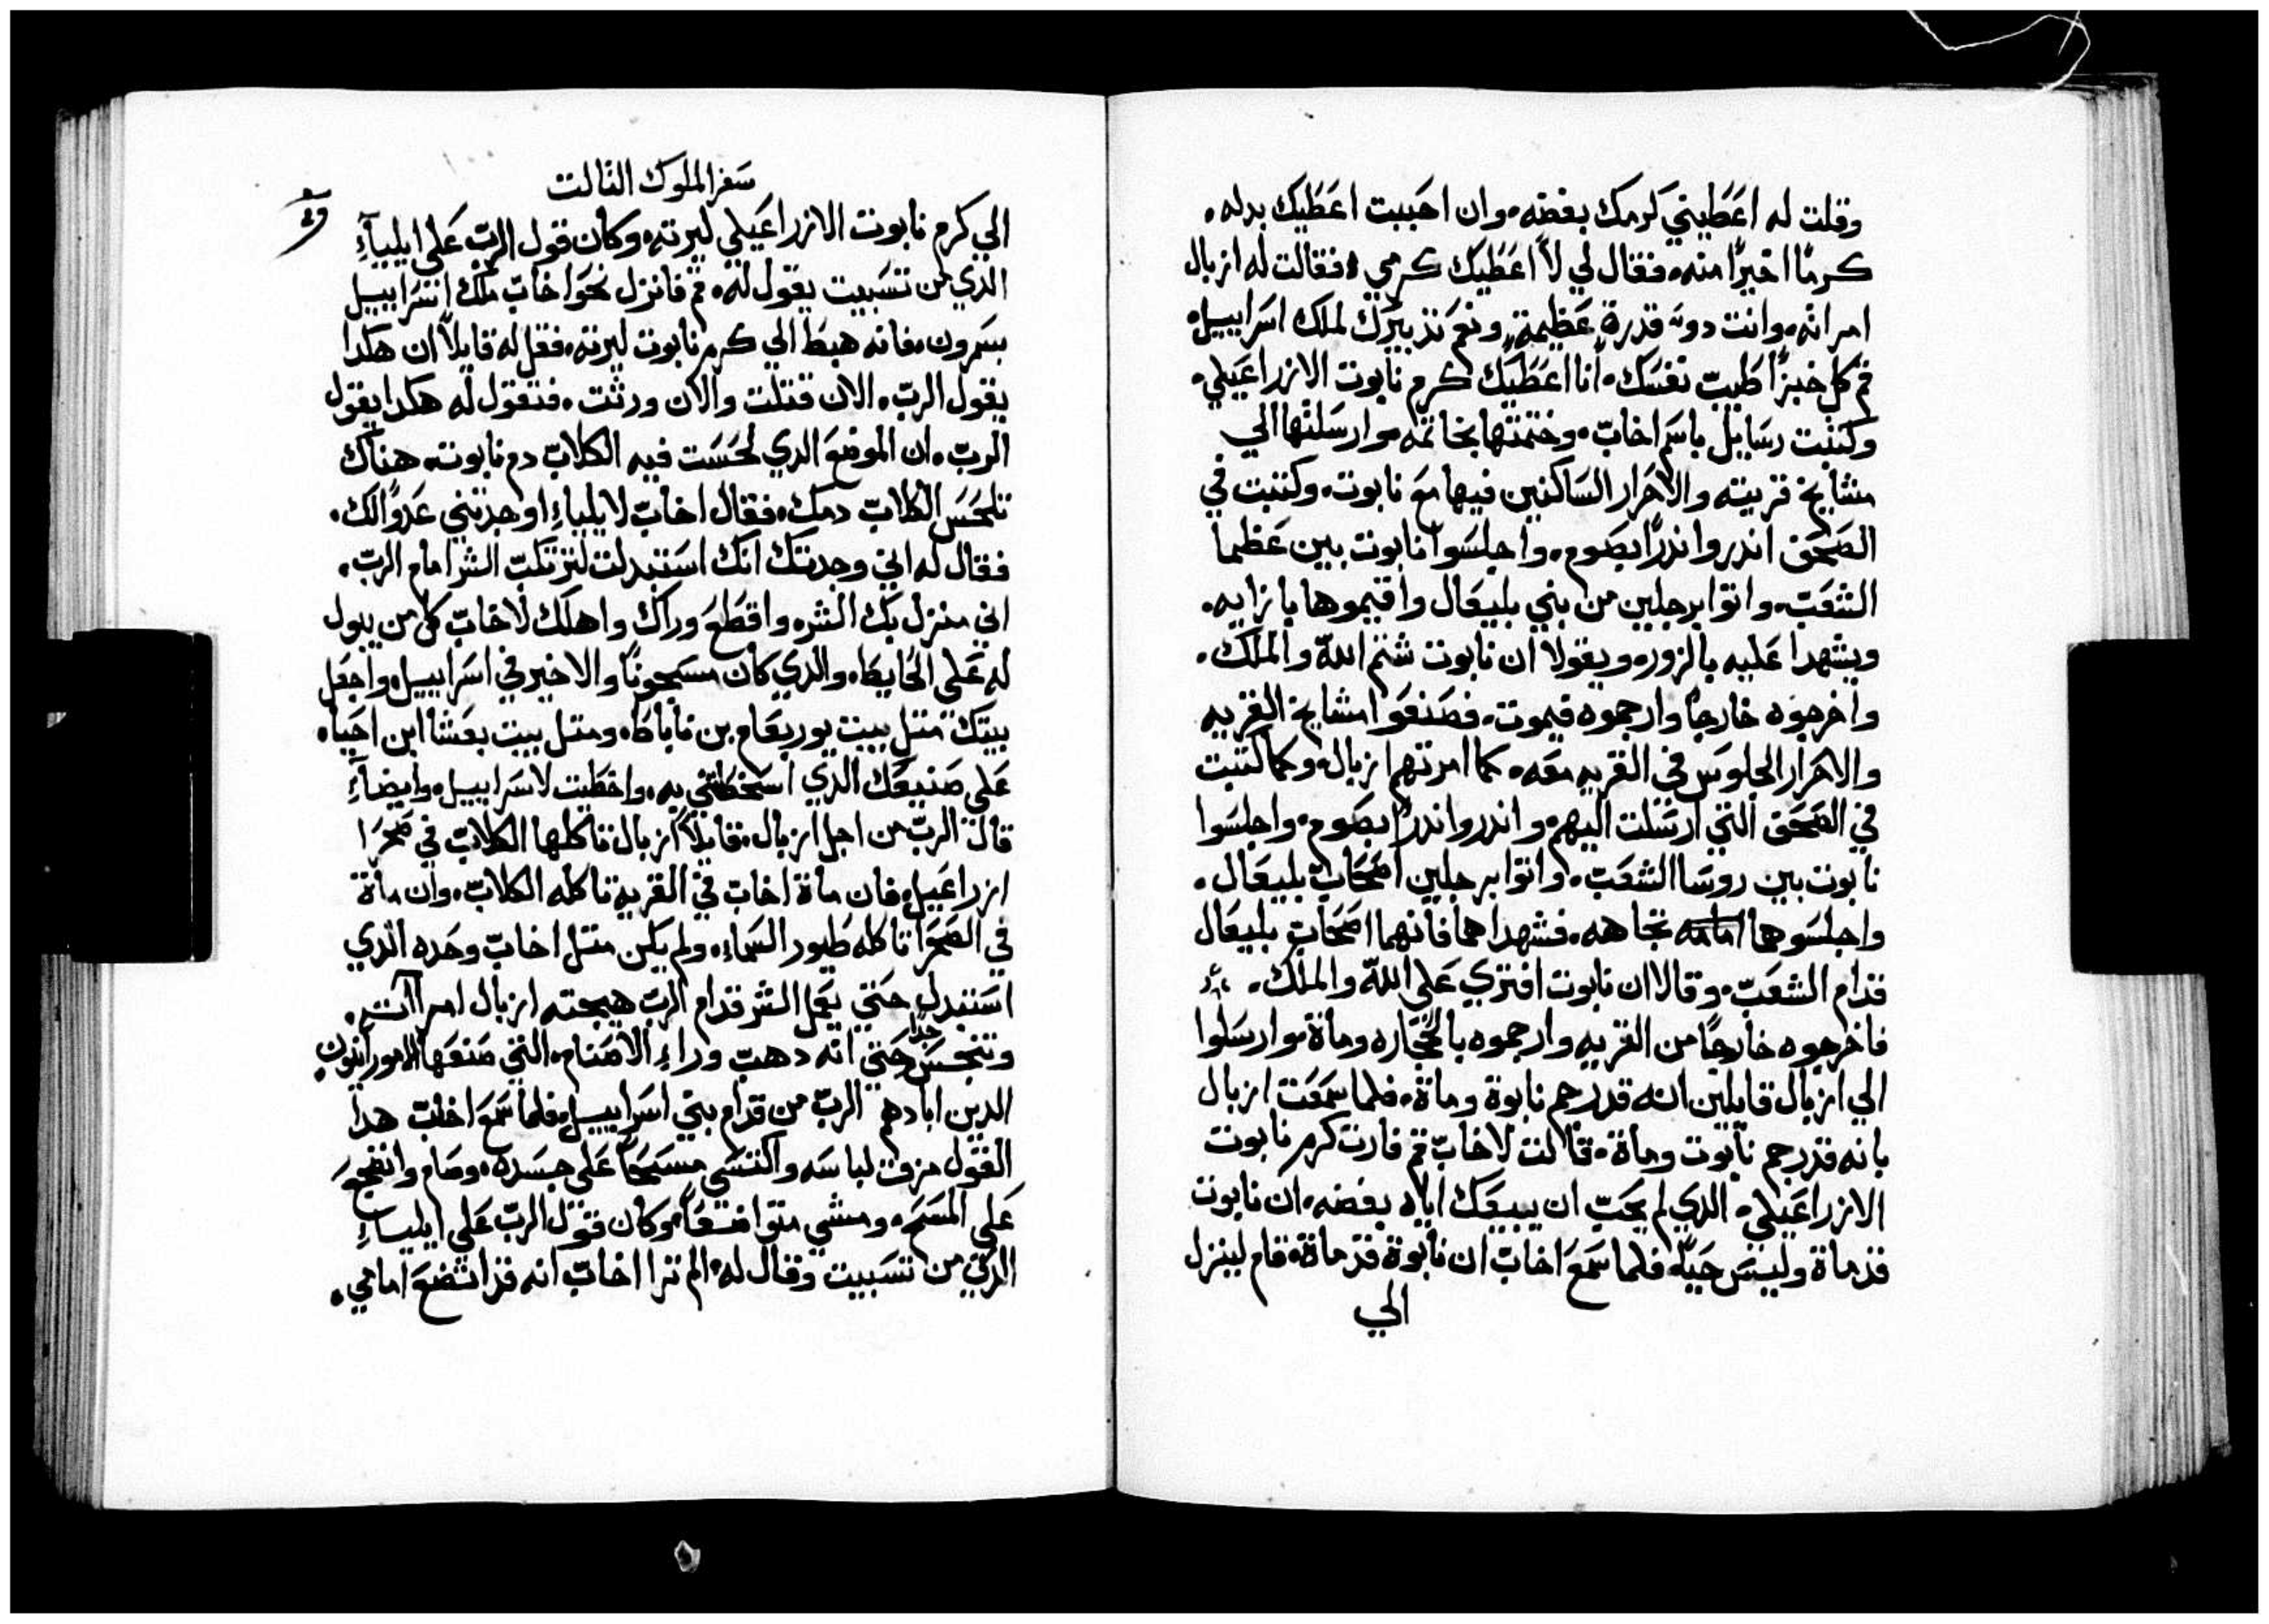 وقلت له اعطيني كرمك بفضه، وان احببت اعطيك بدله.
كرمًا اخيرًا منه، فقال لي لا اعطيك كرمي، فقالت له ازبال
امراته، وانت دوته قدرة عظيمة، ونعم تدبيرك لملك اسراييل،
قم كل خبزًا طيب نفسك، انا اعطيك كرم نابوت الازراعيلي،
وكتبت رسايل باسم اخاب، وختمتها بخاتمه، وارسلتها الي
مشايخ قريته والاحرار الساكنين فيها مع نابوت، وكتبت في
الصحف اندروا ندرًا بصوم، واجلسوا نابوت بين عظما
الشعب، واتوا برجلين من بني بليعال واقيموها بازايه،
ويشهدا عليه بالزور، ويقولا ان نابوت شتم الله والملك.
واخرجوه خارجًا وارجموه فيموت، فصنفوا مشايخ القريه
والاحرار الجلوس في القريه معه، كما امرتهم ازبال، وكما كتبت
في الصحف التي ارسلت اليهم، واندروا ندرًا بصوم، واجلسوا
نابوت بين روسا الشعب، واتوا برجلين اصحاب بليعال.
واجلسوهما امامه تجاهه، فشهدا هما فانهما اصحاب بليعال
قدام الشعب، وقالا ان نابوت افتري علي الله والملك.
فاخرجوه خارجًا من القريه وارجموه بالحجاره وماة، وارسلوا
الي ازبال قايلين انه قد رجم نابوة وماة، فلما سمعت ازبال
بانه قد رجم نابوت وماة، قالت لاخاب قم فارت كرم نابوت
الازراعيلي، الدي لم يحب ان يبيعك اياه بفضه، ان نابوت
قد ماة وليس حيًا، فلما سمع اخاب ان نابوة قد ماة، قام لينزل
الي
سفر الملوك التالت
الي كرم نابوت الازراعيلي ليرته، وكان قول الرب علي ايلياء
الدي من تسبيت يقول له، قم فانزل نحو اخاب ملك اسراييل
بسمرون، فانه هبط الي كرم نابوت ليرته، فقل له قايلاً ان هكدا
يقول الرب، الان قتلت والان ورثت، فتقول له هكدا يقول
الرب، ان الموضع الدي لحست فيه الكلاب دم نابوت، هناك
تلحس الكلاب دمك، فقال اخاب لايلياء اوجدتني عدوًا لك،
فقال له اني وجدتك انك استبدلت لترتكب الشر امام الرب،
اني منزل بك الشر، واقطع وراك واهلك لاخاب كل من يبول
له علي الحايط، والدي كان مسجونًا والاخير في اسراييل، واجعل
بيتك متل بيت يوربعام بن ناباط، ومتل بيت بعشا ابن احيا،
علي صنيعك الدي اسخطتني به، واخطيت لاسراييل، وايضاء
قال الرب من اجل ازبال، قايلاً ازبال تاكلها الكلاب في صحرا
ازراعيل، فان ماة اخاب في القريه تاكله الكلاب، وان ماة
في الصحرا تاكله طيور السماء، ولم يكن متل اخاب وحده الدي
استبدل حتي يعمل الشر قدام الرب هيجته ازبال امراته،
وتنجس جدًا حتي انه دهب وراء الاصنام، التي صنعها الاموراتيون
الدين ابادهم الرب من قدام بني اسراييل، فلما سمع اخاب هدا
القول مزق لباسه واكتسي مسحًا علي جسده، وصام وانضجع
علي المسح، ومشي متواضعًا، وكان قول الرب علي ايلياء
الدي من تسبيت وقال له، الم ترا اخاب انه قد اتضع امامي.